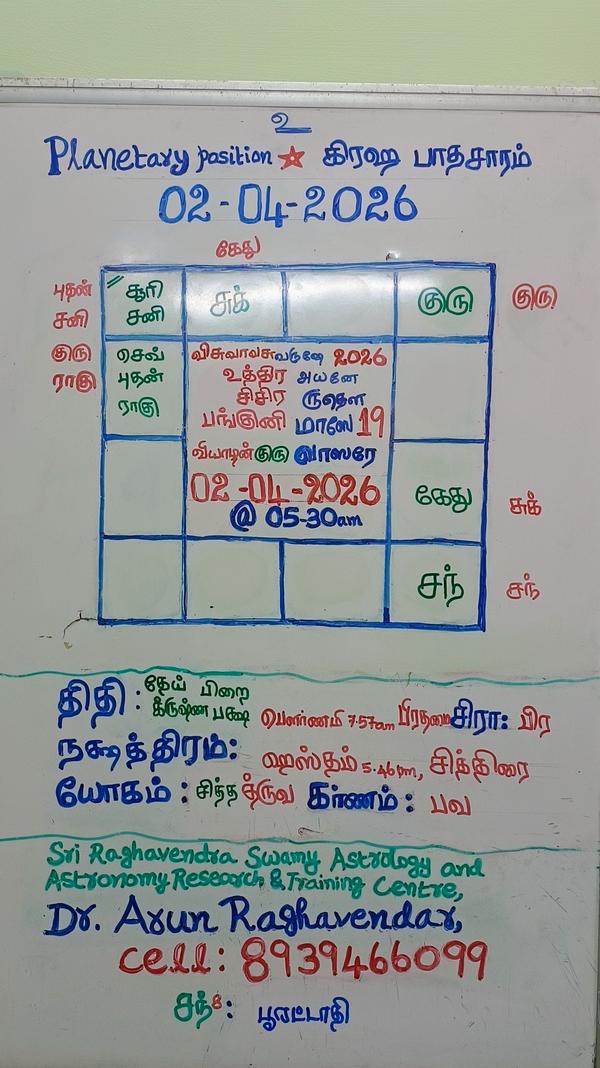 உ
Planetary position ☆ கிரஹ பாதசாரம்
02-04-2026
கேது
புதன்
சனி
குரு
ராகு
சூரி
சனி
சுக்
குரு
குரு
செவ்
புதன்
ராகு
விசுவாவசுவருஷே 2026
உத்திர அயனே
சிசிர ருதௌ
பங்குனி மாஸே 19
வியாழன் குரு வாஸரே
02-04-2026
@ 05-30am
கேது
சுக்
சந்
சந்
திதி : தேய் பிறை
கிருஷ்ண பக்ஷ பௌர்ணமி 7.57am பிரதமை சிரா: பிர
நக்ஷத்திரம்: ஹஸ்தம் 5.46pm, சித்திரை
யோகம் : சித்த த்ருவ கர்ணம் : பவ
Sri Raghavendra Swamy Astrology and
Astronomy Research & Training Centre,
Dr. Arun Raghavendar,
cell: 8939466099
சந்8: பூரட்டாதி